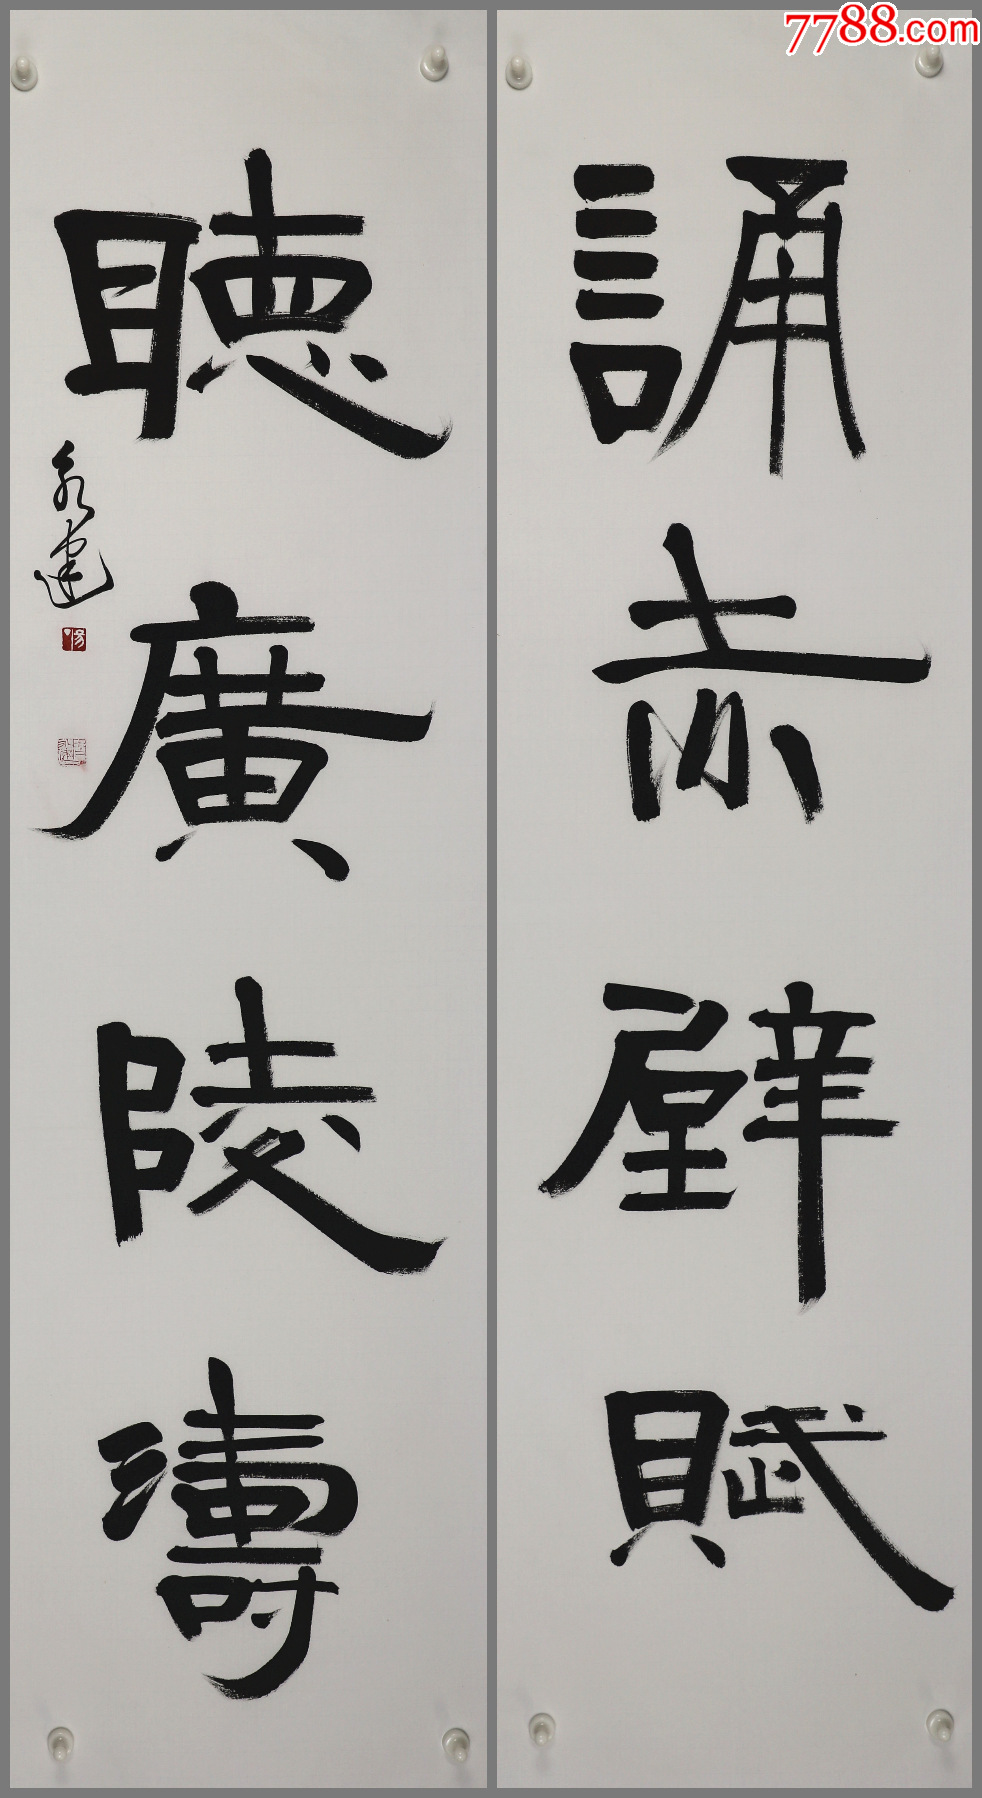 7788.com
誦赤壁賦
聽廣陵濤
永建